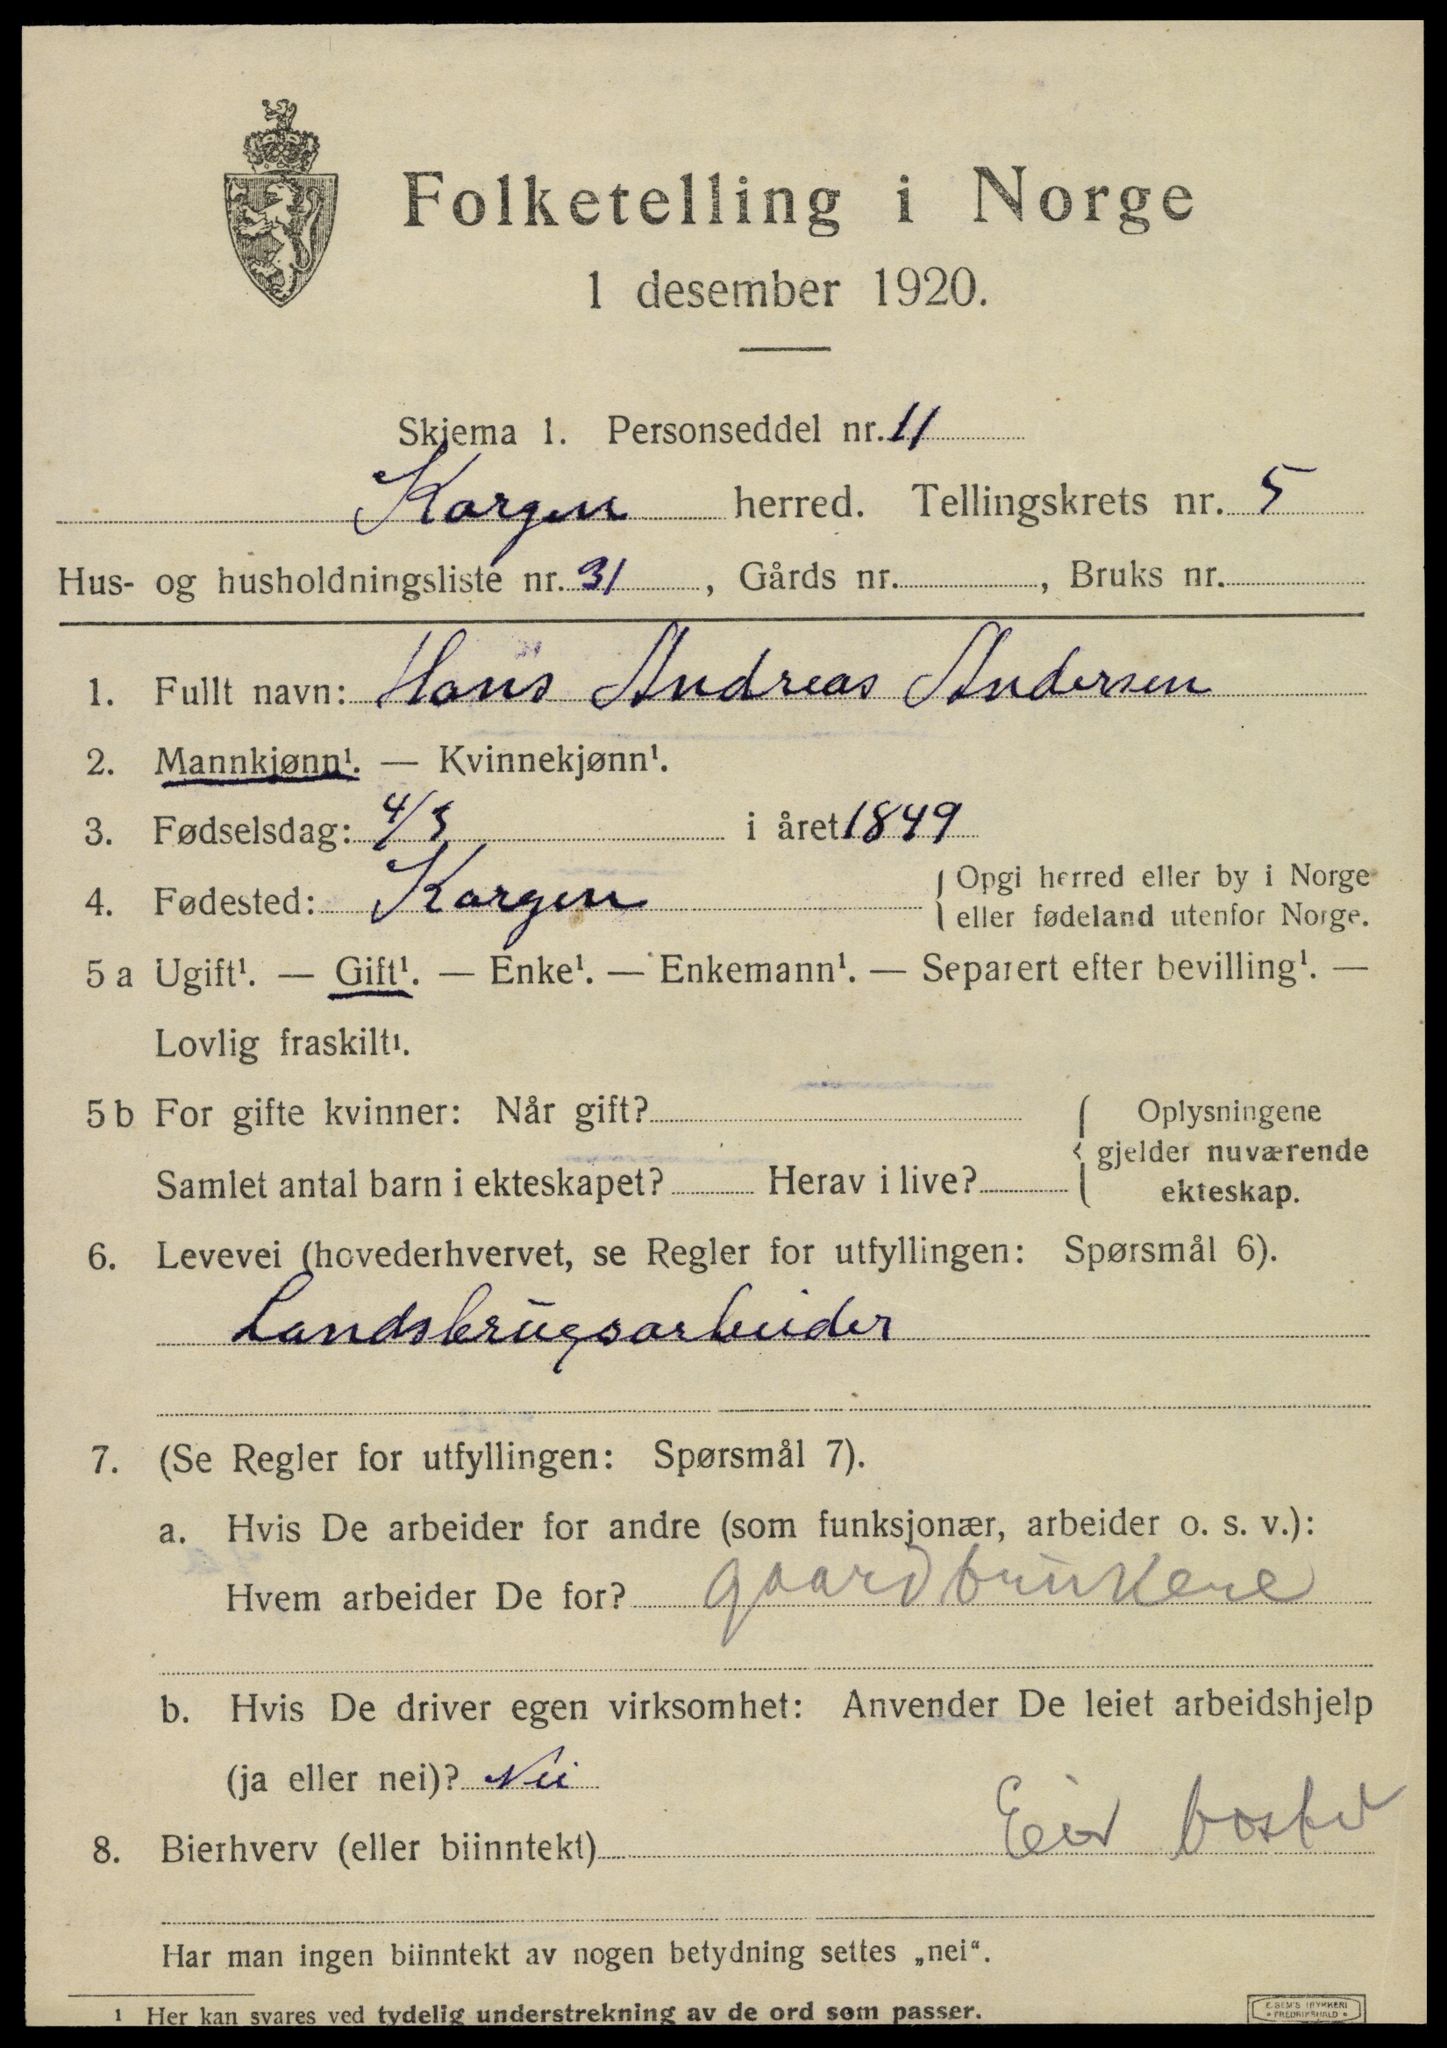 Folketelling i Norge
1 desember 1920.
Skjema 1. Personseddel nr. 11
Korgen herred. Tellingskrets nr. 5
Hus- og husholdningsliste nr. 31, Gårds nr. , Bruks nr.
1. Fullt navn: Hans Andreas Andersen
2. Mannkjønn¹. — Kvinnekjønn¹.
3. Fødselsdag: 4/3 i året 1849
4. Fødested: Korgen { Opgi herred eller by i Norge
eller fødeland utenfor Norge.
5 a Ugift¹. — Gift¹. — Enke¹. — Enkemann¹. — Separert efter bevilling¹. —
Lovlig fraskilt¹.
5 b For gifte kvinner: Når gift? { Oplysningene
gjelder nuværende
Samlet antal barn i ekteskapet? Herav i live? ekteskap.
6. Levevei (hovederhvervet, se Regler for utfyllingen: Spørsmål 6).
Landsbrugsarbeider
7. (Se Regler for utfyllingen: Spørsmål 7).
a. Hvis De arbeider for andre (som funksjonær, arbeider o. s. v.):
Hvem arbeider De for? gaardbrukere
b. Hvis De driver egen virksomhet: Anvender De leiet arbeidshjelp
(ja eller nei)? Nei
8. Bierhverv (eller biinntekt)
Har man ingen biinntekt av nogen betydning settes „nei“.
¹ Her kan svares ved tydelig understrekning av de ord som passer.
E. SEM'S TRYKKERI
FREDRIKSHALD